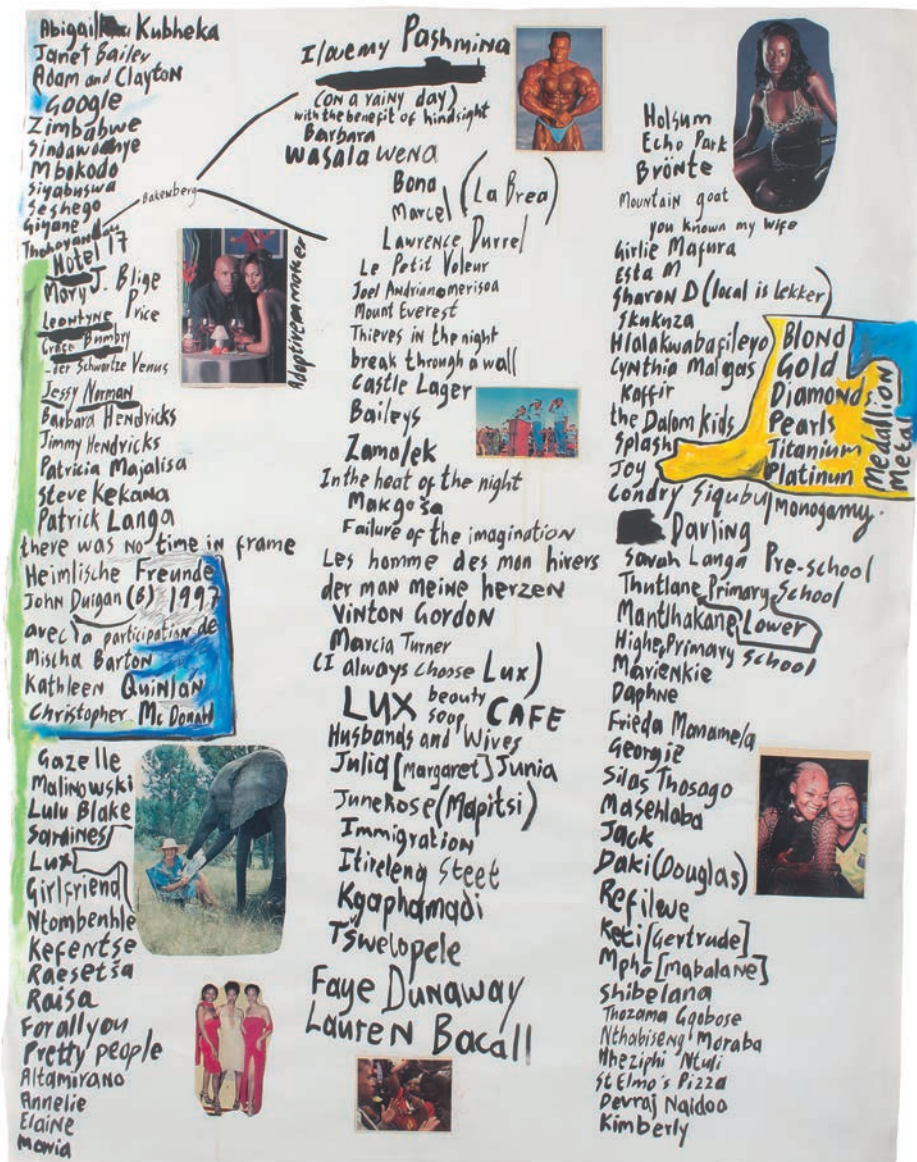 Abigail Kubheka
Janet Bailey
Adam and Clayton
Google
Zimbabwe
Sindawonye
Mbokodo
Siyabuswa
Seshego
Giyane
Thohoyandou
Hotel 17
Mary J. Blige
Leontyne Price
Grace Bumbry
Der Schwartze Venus
Jessy Norman
Barbara Hendricks
Jimmy Hendricks
Patricia Majalisa
Steve Kekana
Patrick Langa
there was no time in frame
Heimlische Freunde
John Duigan (B) 1997
avec la participation de
Mischa Barton
Kathleen Quinlan
Christopher McDonald
Gazelle
Malinowski
Lulu Blake
Sardines
Lux
Girlfriend
Ntombenhle
Kefentse
Raesetša
Raisa
For all you
Pretty people
Altamirano
Annelie
Elaine
Mavia
Bakenberg
I love my Pashmina
(on a rainy day)
with the benefit of hindsight
Barbara
Wasala wena
Bona
Marcel (La Brea)
Lawrence Durrel
Adaptive manner
Le Petit Voleur
Joel Andrianomerisoa
Mount Everest
Thieves in the night
break through a wall
Castle Lager
Baileys
Zamalek
In the heat of the night
Makgoša
Failure of the imagination
Les homme des mon hivers
der man meine herzen
Vinton Gordon
Marcia Turner
(I always choose Lux)
LUX beauty soap CAFE
Husbands and Wives
Julia [Margaret] Junia
June Rose (Mapitsi)
Immigration
Itireleng Steet
Kgaphamadi
Tswelopele
Faye Dunaway
Lauren Bacall
Holsum
Echo Park
Brönte
Mountain goat
you known my wife
Girlie Mafura
Esta M
Sharon D (local is lekker)
Skukuza
Hlalakwabafileyo
Cynthia Malgas
Kaffir
the Dalom Kids
Splash
Joy
Blond
Gold
Diamonds
Pearls
Titanium
Platinun
Medallion
Metal
Condry Siqubu/Monogamy.
Darling
Sarah Langa Pre-school
Thutlane Primary School
Mantlhakane Lower
Higher Primary School
Marienkie
Daphne
Frieda Manamela
Georgie
Silas Thosago
Masehlaba
Jack
Daki (Douglas)
Refilwe
Keti [Gertrude]
Mpho [Mabalane]
Shibelana
Thozama Gqobose
Nthabiseng Moraba
Nheziphi Ntuli
St Elmo's Pizza
Devraj Naidoo
Kimberly